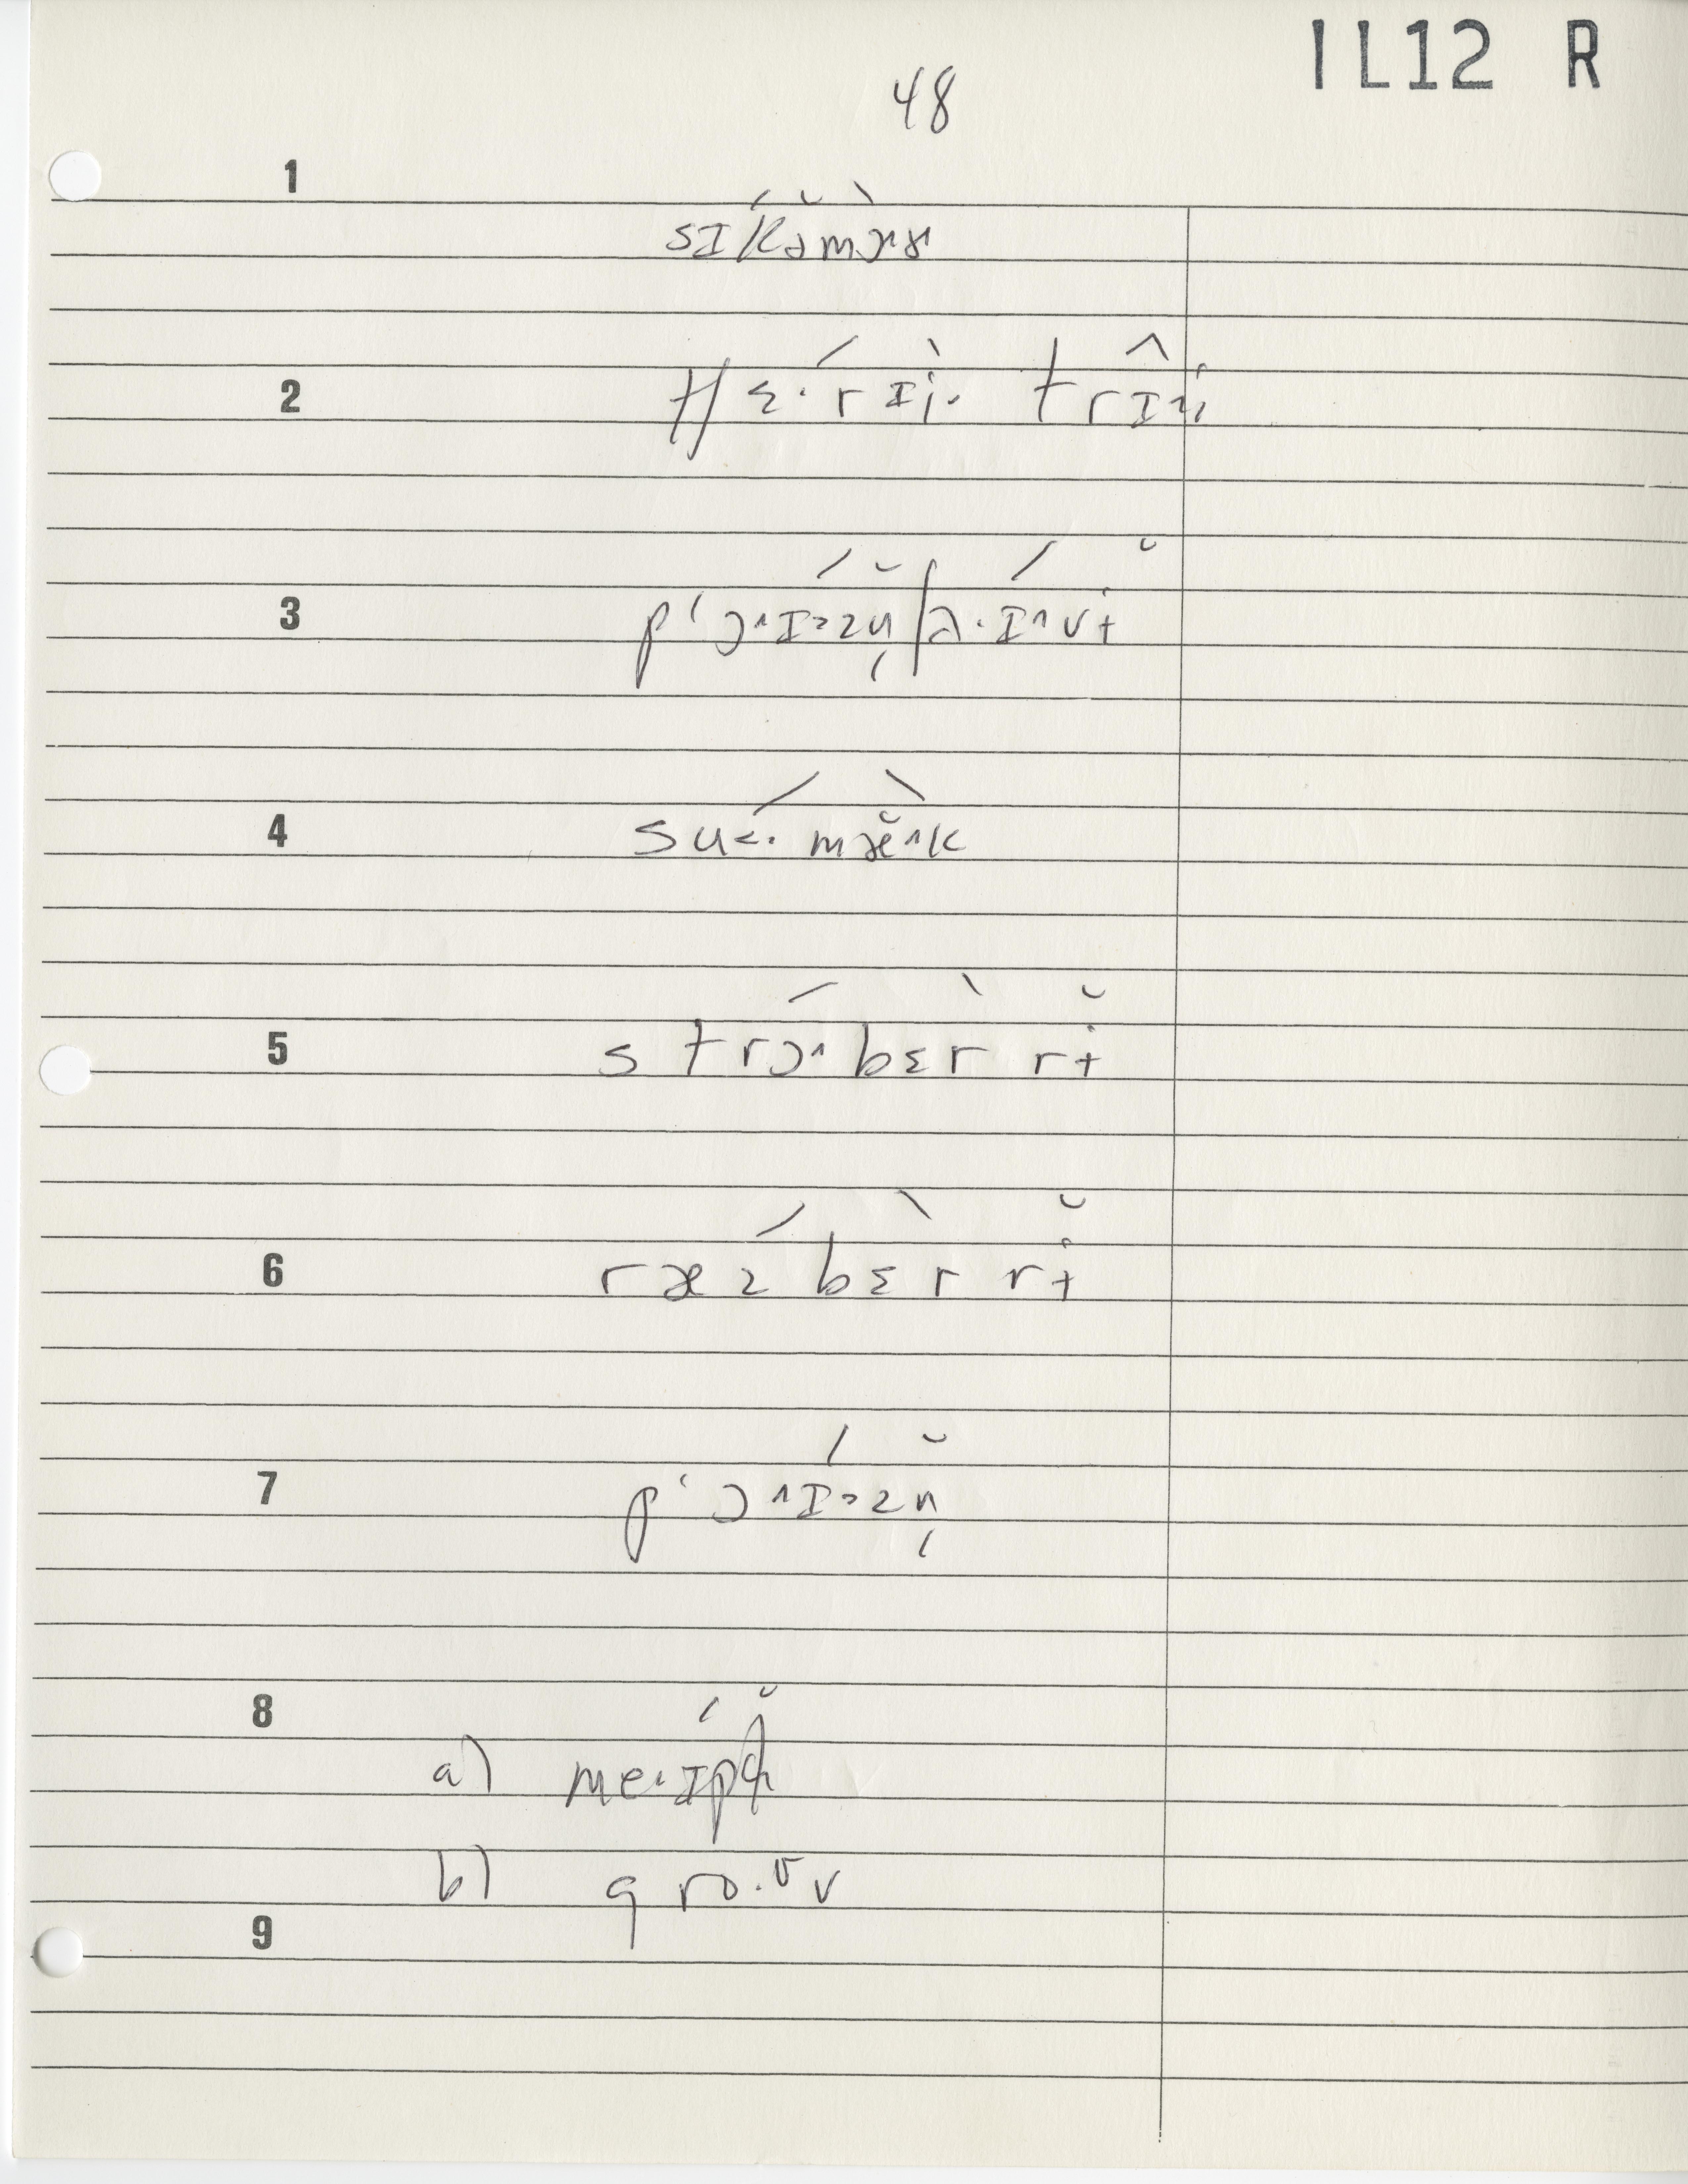 IL12 R
48
1
sɪkəmɔ˞
2
tʃɛ·rɪi· trɪi
3
p‘ɔ^ɪ>zn̩ | a·ɪ^vɨ
4
su<· mæ̆^k
5
strɔ^bɛr rɨ
6
ræzbɛr rɨ
7
p‘ɔ^ɪ>zn̩
8
a)
b) gro·ʊv
9